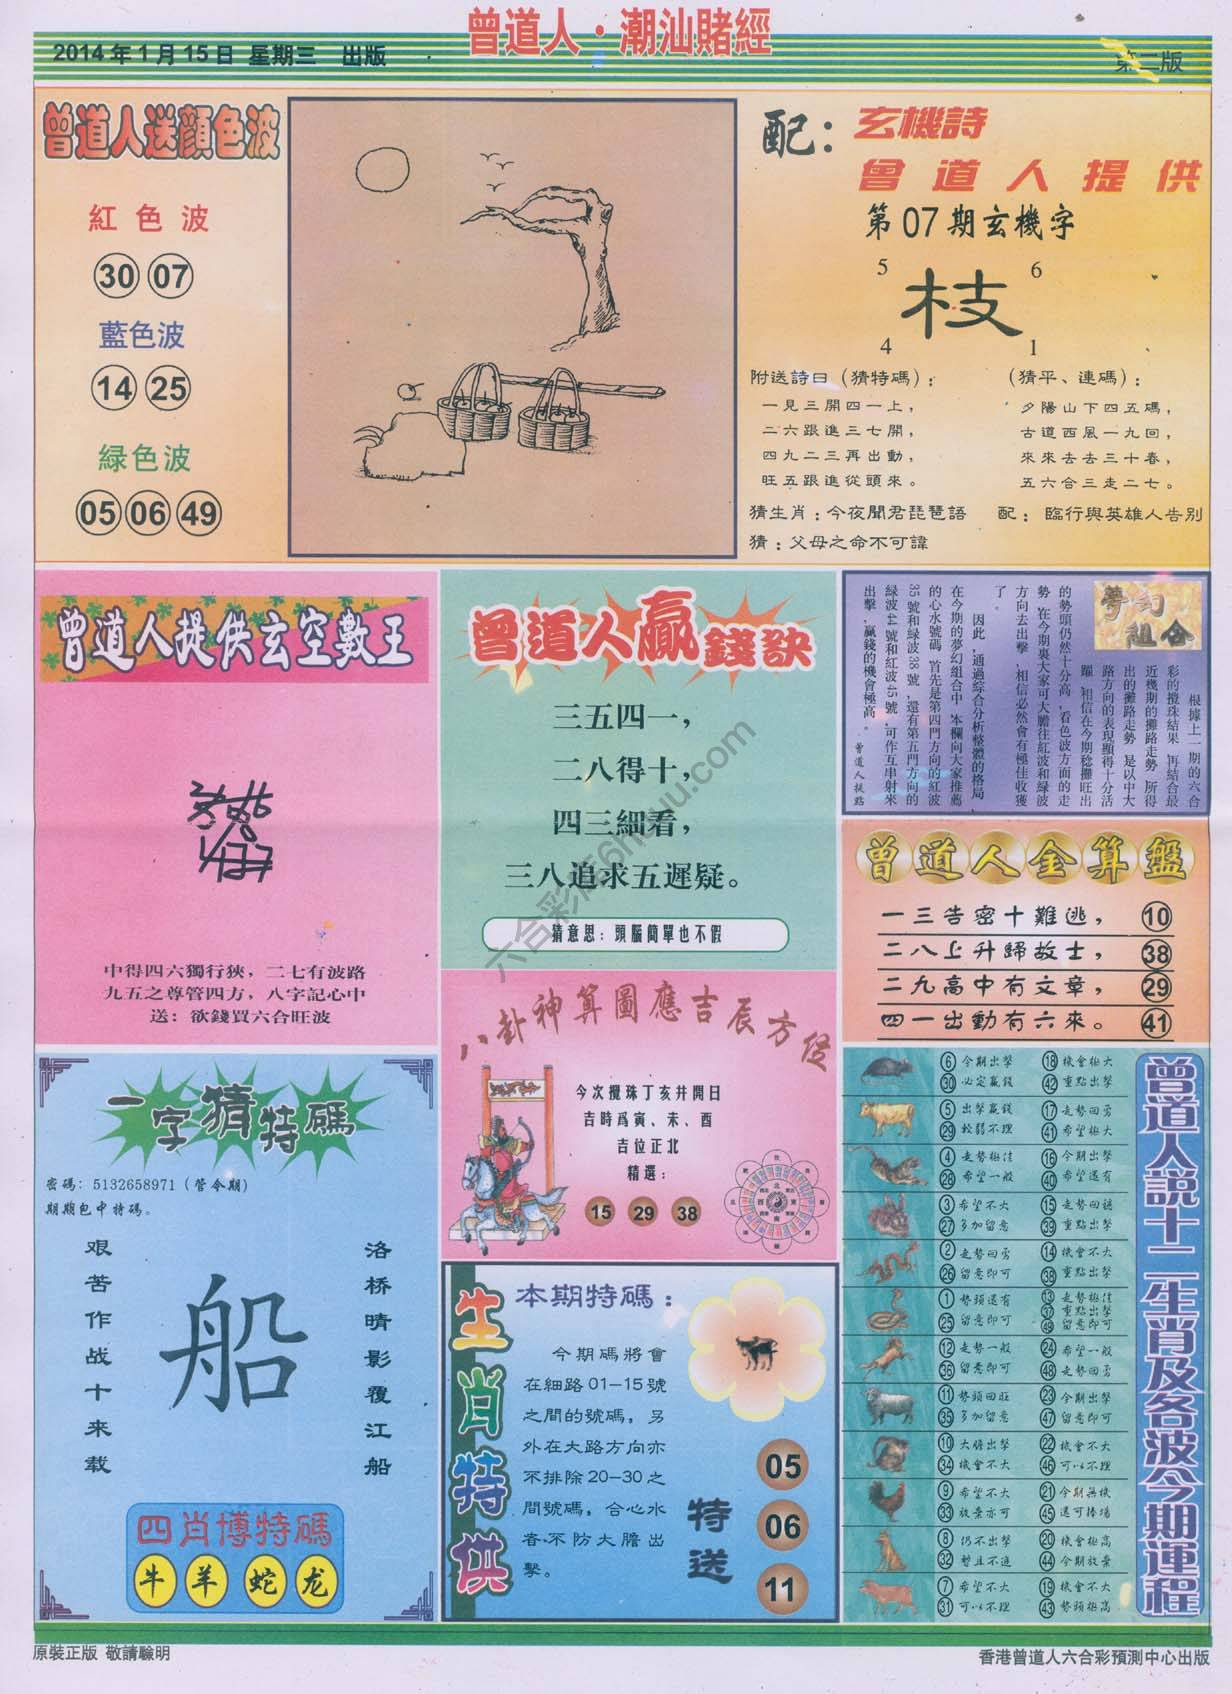 曾道人·潮汕賭經
2014年1月15日 星期三 出版
第二版
曾道人送顔色波
紅色波
30 07
藍色波
14 25
緑色波
05 06 49
配：
玄機詩
曾道人提供
第07期玄機字
5 6
枝
4 1
附送詩曰（猜特碼）：
一見三開四一上，
二六跟進三七開，
四九二三再出動，
旺五跟進從頭來。
（猜平、連碼）：
夕陽山下四五碼，
古道西風一九回，
來來去去三十春，
五六合三走二七。
猜生肖：今夜聞君琵琶語 配：臨行與英雄人告别
猜：父母之命不可諱
曾道人提供玄空數王
中得四六獨行狹，二七有波路
九五之尊管四方，八字記心中
送：欲錢買六合旺波
曾道人贏錢訣
三五四一，
二八得十，
四三細看，
三八追求五遲疑。
猜意思：頭腦簡單也不假
夢幻組合
根據上一期的六合
彩的攪珠結果，再結合最
近幾期的攤路走勢，所得
出的攤路走勢，是以中大
路方向的表現顯得十分活
躍，相信在今期稔攤旺出
的勢頭仍然十分高，看色波方面的走
勢，在今期裏大家可大膽往紅波和緑波
方向去出擊，相信必然會有極佳收獲
了。
因此，通過綜合分析整體的格局，
在今期的夢幻組合中，本欄向大家推薦
的心水號碼，首先是第四門方向的紅波
35號和緑波38號，還有第五門方向的
緑波44號和紅波45號，可作互串射來
出擊，贏錢的機會極高。
曾道人提點
曾道人金算盤
一三告密十難逃， 10
二八上升歸故士， 38
二九高中有文章， 29
四一出動有六來。 41
八卦神算圖應吉辰方位
今次攪珠丁亥井開日
吉時爲寅、未、酉
吉位正北
精選：
15 29 38
一字猜特碼
密碼：5132658971（管令期）
期期包中特碼。
艰苦作战十来载
船
洛桥晴影覆江船
四肖博特碼
牛 羊 蛇 龙
生肖特供
本期特碼：
今期碼將會
在細路01—15號
之間的號碼，另
外在大路方向亦
不排除20—30之
間號碼，合心水
者不防大膽出
擊。
特送
05
06
11
曾道人說十二生肖及各波今期運程
6 今期出擊 18 機會極大
30 必定贏錢 42 重點出擊
5 出擊贏錢 17 走勢回勇
29 較弱不理 41 希望極大
4 走勢極佳 16 今期出擊
28 希望一般 40 希望還有
3 希望不大 15 走勢回穩
27 多加留意 39 重點出擊
2 走勢回勇 14 機會不大
26 留意即可 38 重點出擊
1 勢頭還有 13 走勢極佳
37 重點出擊
25 留意即可 49 留意即可
12 走勢一般 24 希望一般
36 留意即可 48 走勢回勇
11 勢頭回旺 23 今期出擊
35 多加留意 47 留意即可
10 大膽出擊 22 機會不大
34 機會不大 46 可以不理
9 希望不大 21 今期無機
33 放棄亦可 45 還可捧場
8 仍不出擊 20 機會極高
32 暫且不追 44 今期放棄
7 希望不大 19 機會不大
31 可以不理 43 勢頭極高
原裝正版 敬請驗明
香港曾道人六合彩預測中心出版